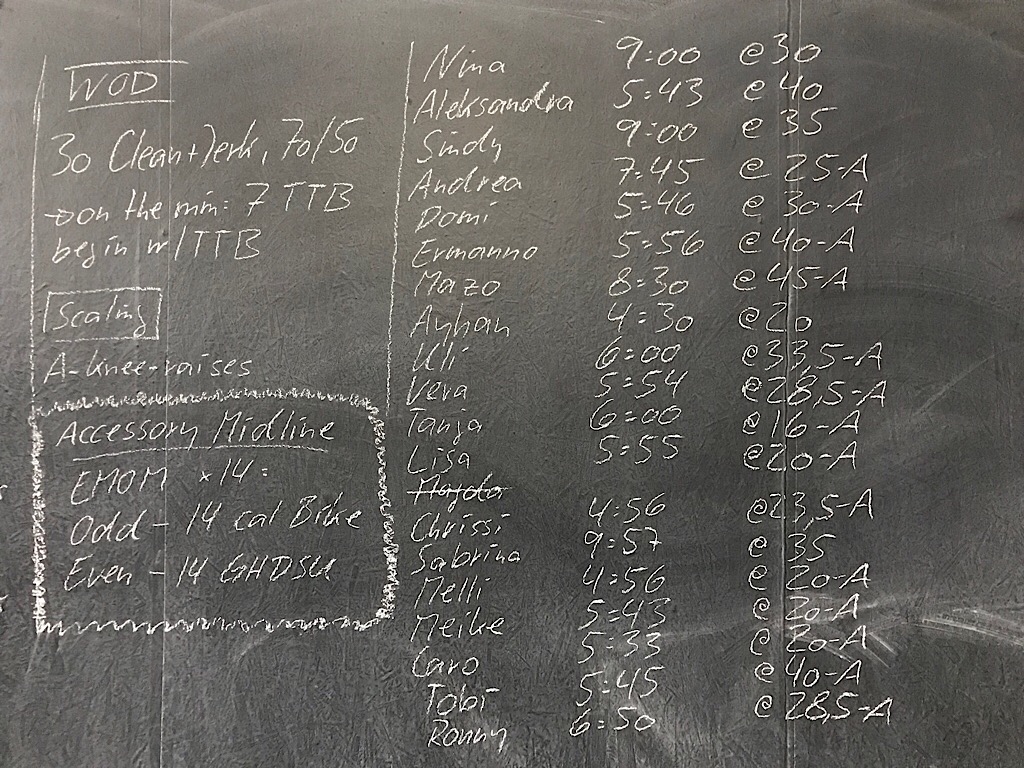 WOD
30 Clean+Jerk, 70/50
→on the min: 7 TTB
begin w/TTB
Scaling
A-knee-raises
Accessory Midline
EMOM x14:
Odd - 14 cal Bike
Even - 14 GHDSU
Nina 9:00 @30
Aleksandra 5:43 @ 40
Sindy 9:00 @ 35
Andrea 7:45 @ 25-A
Domi 5:46 @ 30-A
Ermanno 5:56 @40-A
Mazo 8:30 @45-A
Ayhan 4:30 @20
Uli 6:00 @33,5-A
Vera 5:54 @28,5-A
Tanja 6:00 @16-A
Lisa 5:55 @20-A
Chrissi 4:56 @23,5-A
Sabrina 9:57 @ 35
Melli 4:56 @ 20-A
Meike 5:43 @ 20-A
Caro 5:33 @ 20-A
Tobi 5:45 @ 40-A
Ronny 6:50 @ 28,5-A